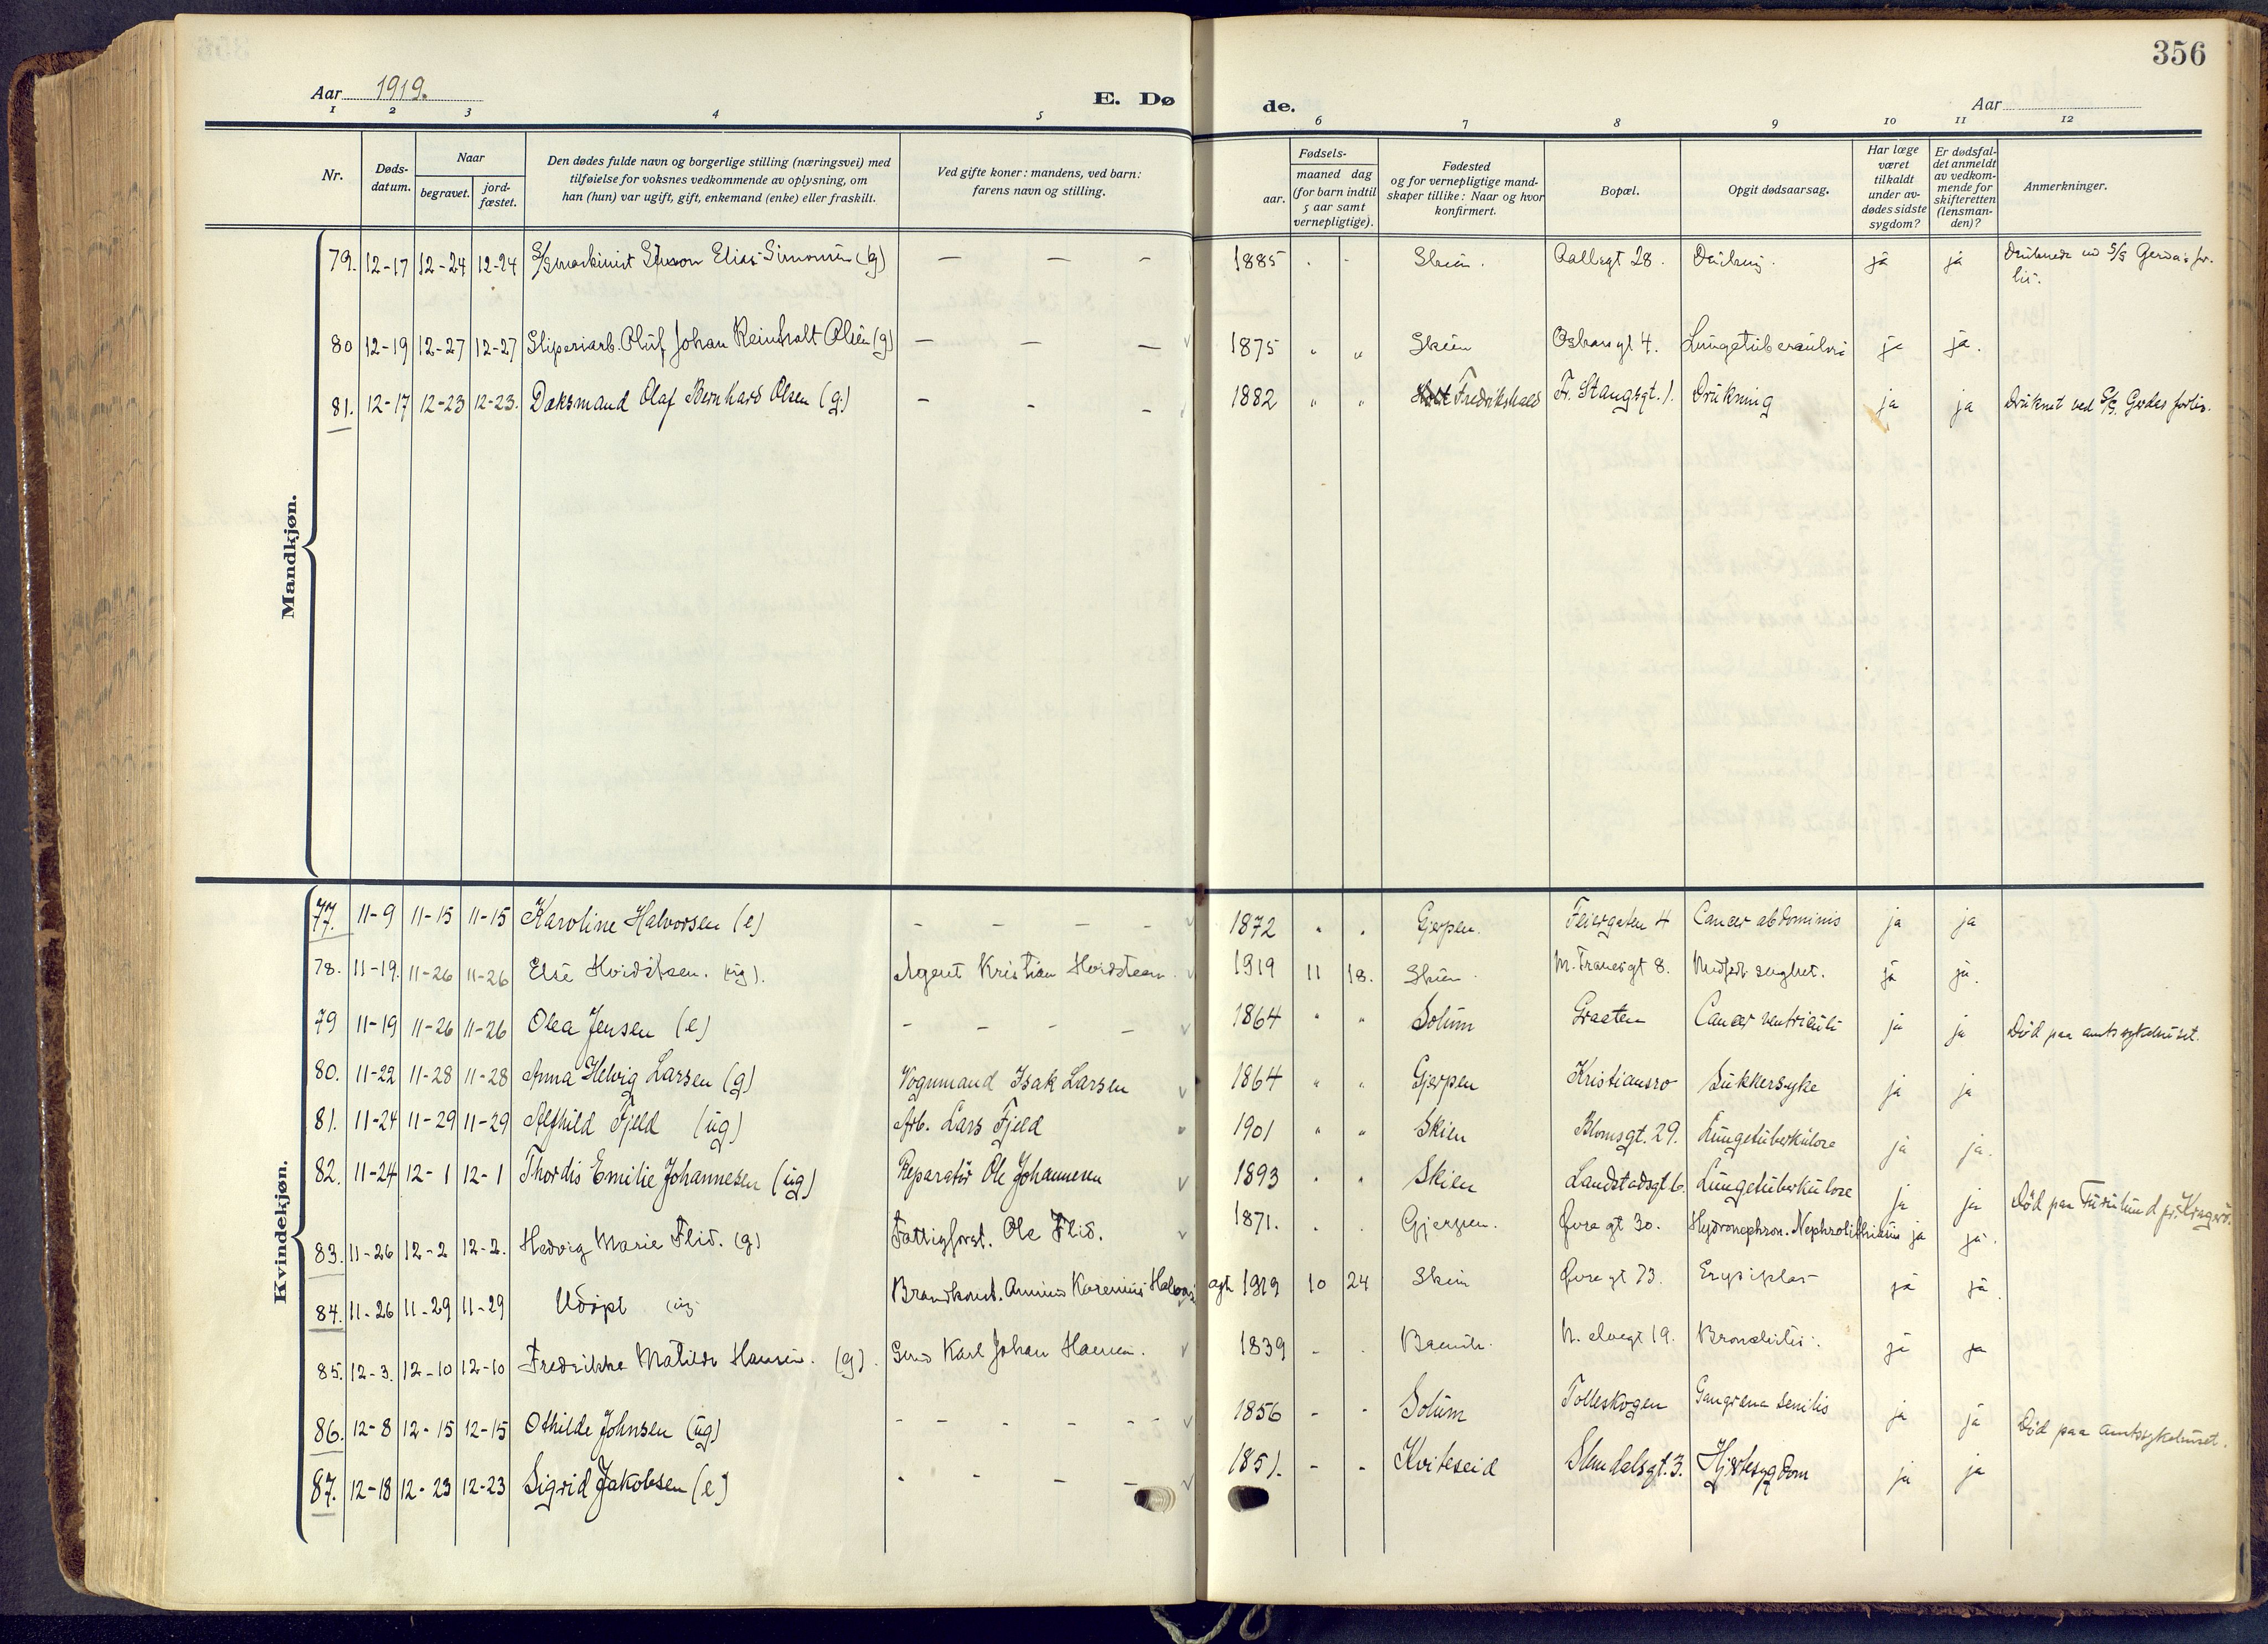 356
Aar 1919.
E. Dø
de.
Aar
1 2 3 4 5 6 7 8 9 10 11 12
Nr.
Døds-
datum.
Naar
begravet.
jord-
fæstet.
Den dødes fulde navn og borgerlige stilling (næringsvei) med
tilføielse for voksnes vedkommende av oplysning, om
han (hun) var ugift, gift, enkemand (enke) eller fraskilt.
Ved gifte koner: mandens, ved barn:
farens navn og stilling.
Fødsels-
aar.
maaned dag
(for barn indtil
5 aar samt
vernepligtige).
Fødested
og for vernepligtige mand-
skaper tillike: Naar og hvor
konfirmert.
Bopæl.
Opgit dødsaarsag.
Har læge
været
tilkaldt
under av-
dødes sidste
sygdom?
Er dødsfal-
det anmeldt
av vedkom-
mende for
skifteretten
(lensman-
den)?
Anmerkninger.
Mandkjøn.
79. 12-17 12-24 12-24 S/Smaskinist Simon Elias Simonsen (g) — — - 1885 Skien. Aallsgt 28. Drukning. ja ja Druknede ved S/S Gerda's for-
lis.
80 12-19 12-27 12-27 Sliperiarb. Oluf Johan Reinholt Olsen (g) — — — 1875 " " Skien Oskarsgt 4. Lungetuberculose ja ja.
81. 12-17 12-23 12-23. Dæksmand Olaf Bernhard Olsen (g.) - - - 1882 " " Fredrikshald Fr. Stangsgt. 1. Drukning ja ja Druknet ved S/S. Gerdas forlis.
Kvindekjøn.
77. 11-9 11-15 11-15 Karoline Halvorsen (e) - - - - 1872 " " Gjerpen. Feiergaten 4 Cancer abdominis ja ja
78. 11-19. 11-26 11-26 Else Hvidsteen. (ug). Agent Kristian Hvidsteen 1919 11 18. Skien. M. Tranesgt 8. Medfødt svaghet. ja ja.
79 11-19 11-26 11-26 Olea Jensen (e) - - - - 1864 " " Solum Graaten Cancer ventriculi ja ja Død paa amtssykehuset.
80. 11-22 11-28 11-28 Anna Helvig Larsen (g) Vognmand Isak Larsen 1864 " " Gjerpen Kristiansro Sukkersyke ja ja
81. 11-24 11-29 11-29 Alfhild Fjeld (ug) Arb. Lars Fjeld 1901 " " Skien Blomsgt. 29. Lungetuberkulose ja ja.
82. 11-24 12-1 12-1 Thordis Emilie Johannesen (ug) Reparatør Ole Johannesen 1893 " " Skien Landstadsgt 6. Lungetuberkulose ja ja Død paa Furulund pr. Kragerø.
83. 11-26 12-2 12-2. Hedvig Marie Flid. (g) Fattigforst. Ole Flid. 1871. Gjerpen. Øvre gt 30. Hydronephron. Nephrolithiasis ja ja.
84. 11-26 11-29 11-29 Udøpt (ug) Brandkonst. Halvor 1919 10 24 Skien Øvre gt 73. Erysipelas ja ja.
85. 12-3. 12-10 12-10 Fredrikke Matilde Hansen. (g). Karl Johan Hansen. 1839 - . N. elvegt 19. Bronchitis. ja ja
86. 12-8 12-15 12-15 Othilde Johnsen (ug) - - - - - - 1856 - - Solum Tolleskogen Gangræna senilis ja ja Død paa amtssykehuset.
87. 12-18 12-23 12-23 Sigrid Jakobsen (e) - - - - 1851. - - Kviteseid Slemdalsgt. 3. Hjertesygdom ja ja